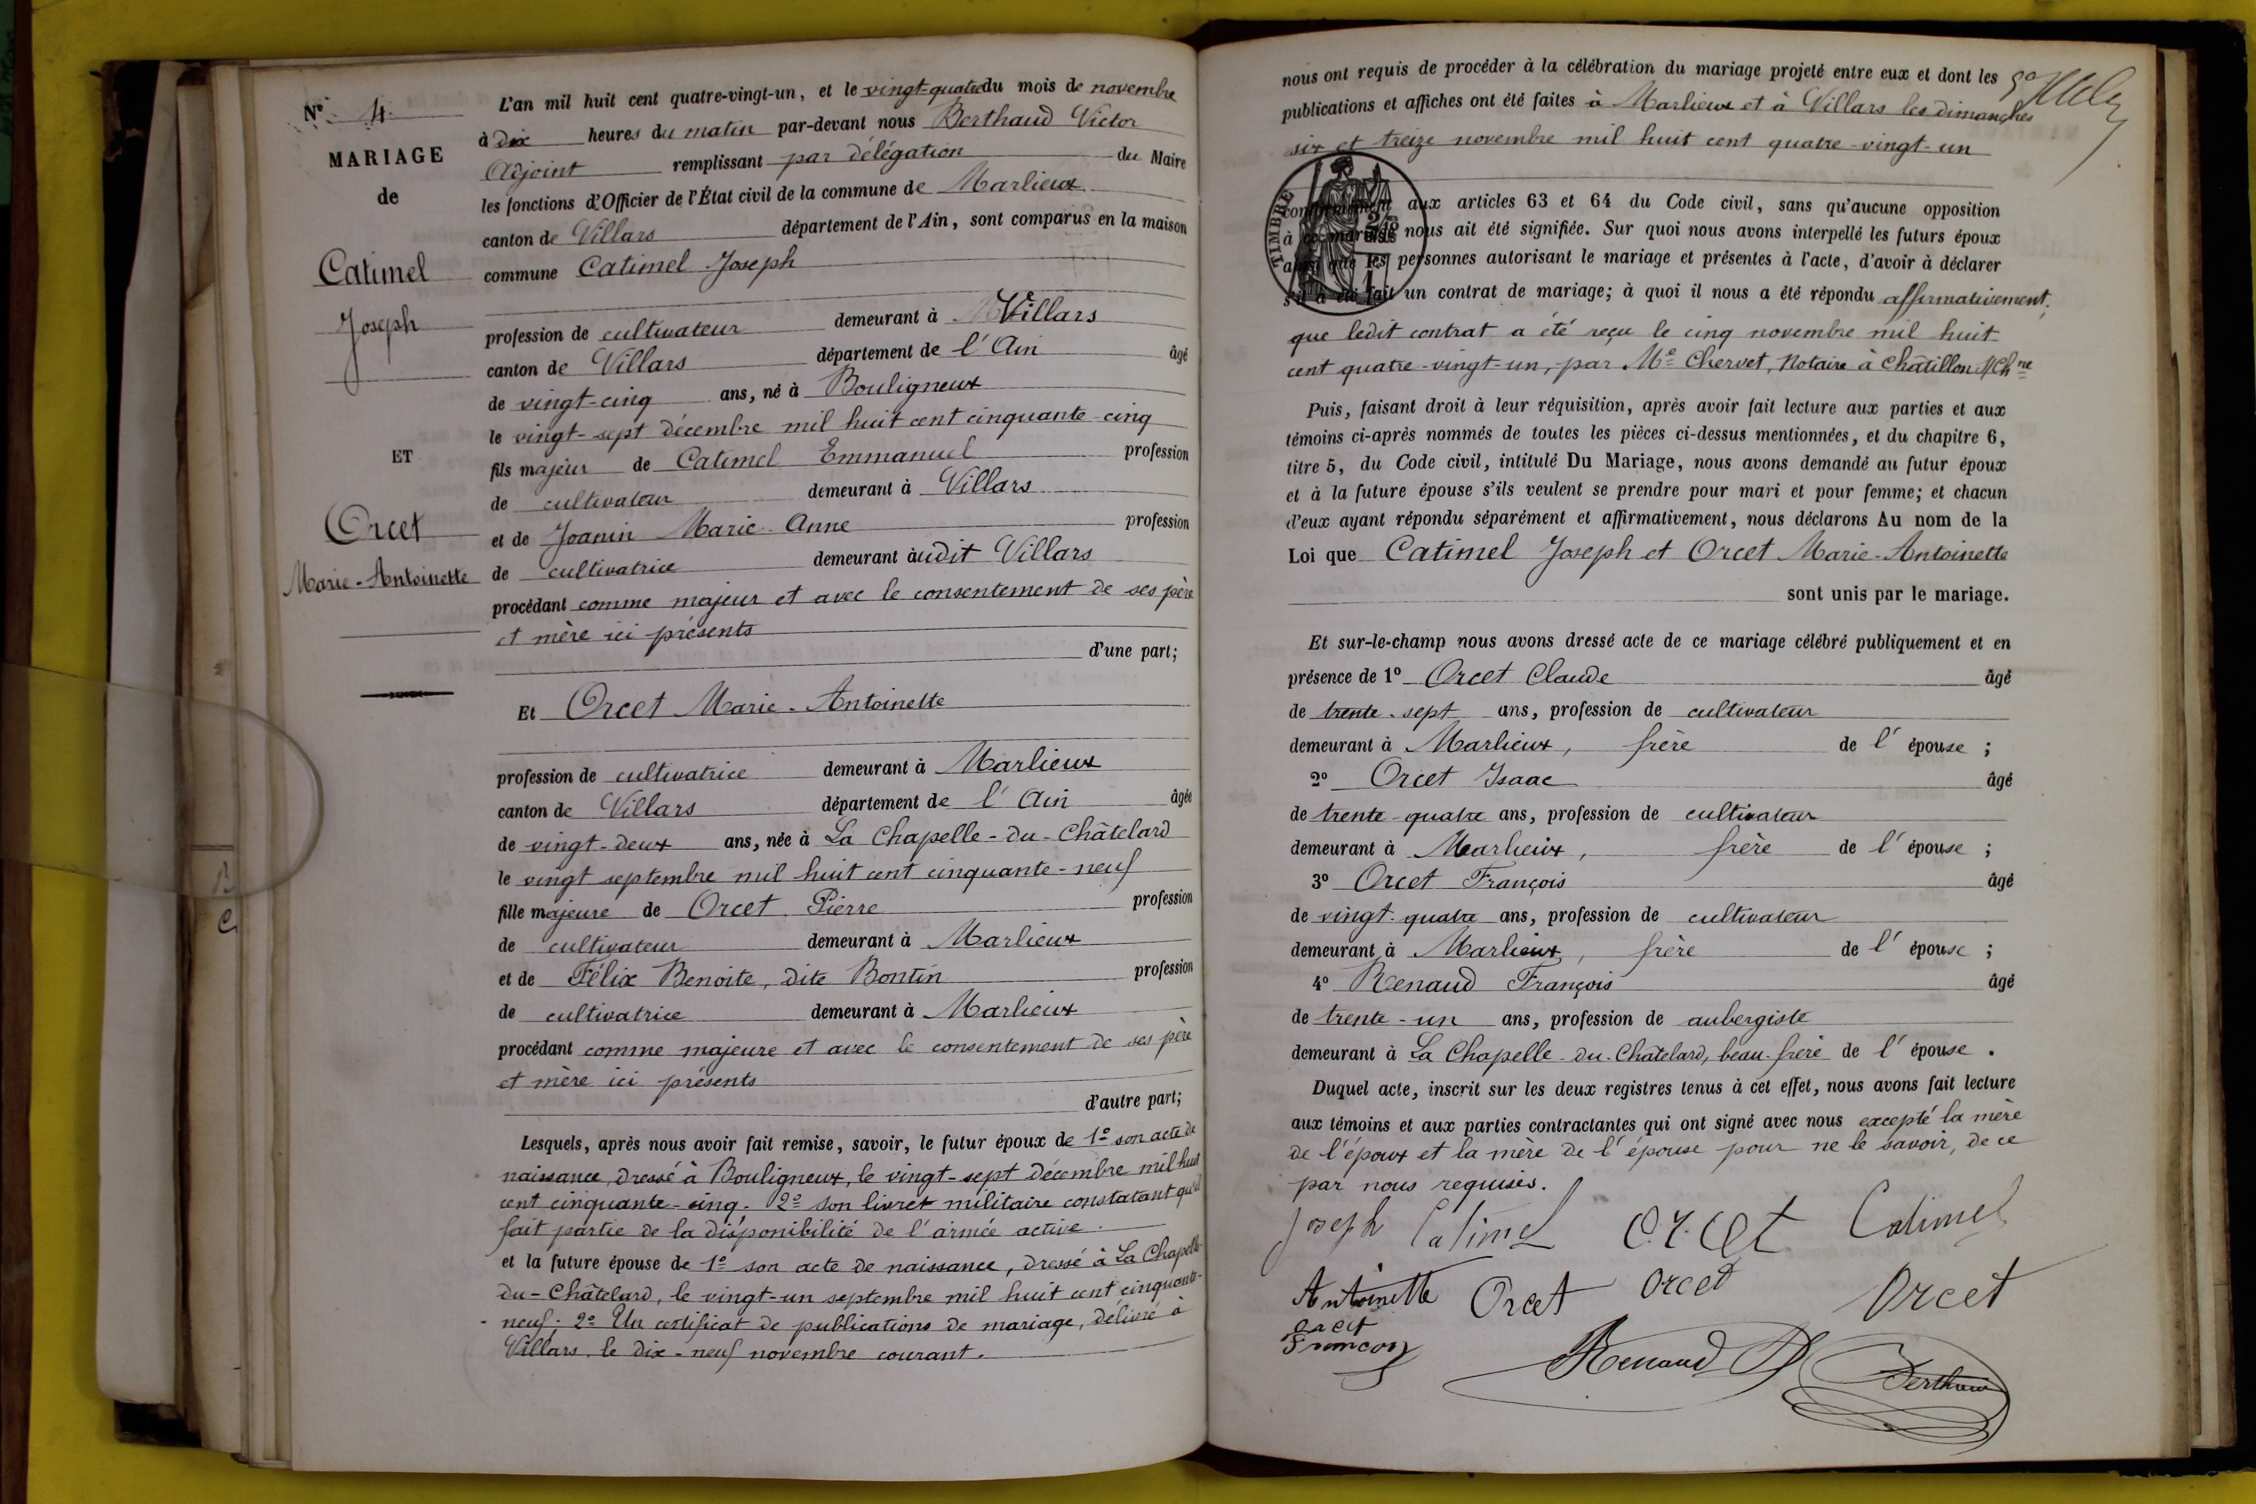 N° 4
MARIAGE
de
Catimel
Joseph
ET
Orcet
Marie-Antoinette
L'an mil huit cent quatre-vingt-un, et le vingt-quatre du mois de novembre
à dix heures du matin par-devant nous Berthaud Victor
Adjoint remplissant par délégation du Maire
les fonctions d'Officier de l'État civil de la commune de Marlieux
canton de Villars département de l'Ain, sont comparus en la maison
commune Catimel Joseph
profession de cultivateur demeurant à Villars
canton de Villars département de l'Ain âgé
de vingt-cinq ans, né à Bouligneux
le vingt-sept décembre mil huit cent cinquante-cinq
fils majeur de Catimel Emmanuel profession
de cultivateur demeurant à Villars
et de Joanin Marie-Anne profession
de cultivatrice demeurant àudit Villars
procédant comme majeur et avec le consentement de ses père
et mère ici présents
d'une part;
Et Orcet Marie-Antoinette
profession de cultivatrice demeurant à Marlieux
canton de Villars département de l'Ain âgée
de vingt-deux ans, née à La Chapelle-du-Châtelard
le vingt septembre mil huit cent cinquante-neuf
fille majeure de Orcet Pierre profession
de cultivateur demeurant à Marlieux
et de Félix Benoite, dite Bontin profession
de cultivatrice demeurant à Marlieux
procédant comme majeure et avec le consentement de ses père
et mère ici présents
d'autre part;
Lesquels, après nous avoir fait remise, savoir, le futur époux de 1° son acte de
naissance, dressé à Bouligneux, le vingt-sept décembre mil huit
cent cinquante-cinq. 2° son livret militaire constatant qu'il
fait partie de la disponibilité de l'armée active.
et la future épouse de 1° son acte de naissance, dressé à La Chapelle-
du-Châtelard, le vingt-un septembre mil huit cent cinquante-
neuf. 2° Un certificat de publications de mariage, délivré à
Villars, le dix-neuf novembre courant.
nous ont requis de procéder à la célébration du mariage projeté entre eux et dont les
publications et affiches ont été faites à Marlieux et à Villars les dimanches
six et treize novembre mil huit cent quatre-vingt-un
TIMBRE
conformément aux articles 63 et 64 du Code civil, sans qu'aucune opposition
à ce mariage nous ait été signifiée. Sur quoi nous avons interpellé les futurs époux
ainsi que les personnes autorisant le mariage et présentes à l'acte, d'avoir à déclarer
s'il a été fait un contrat de mariage; à quoi il nous a été répondu affirmativement;
que ledit contrat a été reçu le cinq novembre mil huit
cent quatre-vingt-un, par Me Chervet, Notaire à Châtillon s/Chne
Puis, faisant droit à leur réquisition, après avoir fait lecture aux parties et aux
témoins ci-après nommés de toutes les pièces ci-dessus mentionnées, et du chapitre 6,
titre 5, du Code civil, intitulé Du Mariage, nous avons demandé au futur époux
et à la future épouse s'ils veulent se prendre pour mari et pour femme; et chacun
d'eux ayant répondu séparément et affirmativement, nous déclarons Au nom de la
Loi que Catimel Joseph et Orcet Marie-Antoinette
sont unis par le mariage.
Et sur-le-champ nous avons dressé acte de ce mariage célébré publiquement et en
présence de 1° Orcet Claude âgé
de trente-sept ans, profession de cultivateur
demeurant à Marlieux, frère de l'épouse;
2° Orcet Isaac âgé
de trente-quatre ans, profession de cultivateur
demeurant à Marlieux, frère de l'épouse;
3° Orcet François âgé
de vingt-quatre ans, profession de cultivateur
demeurant à Marlieux, frère de l'épouse;
4° Renaud François âgé
de trente-un ans, profession de aubergiste
demeurant à La Chapelle-du-Châtelard, beau-frère de l'épouse.
Duquel acte, inscrit sur les deux registres tenus à cet effet, nous avons fait lecture
aux témoins et aux parties contractantes qui ont signé avec nous excepté la mère
de l'époux et la mère de l'épouse pour ne le savoir, de ce
par nous requises.
Joseph Catimel Orcet Catimel
Antoinette Orcet Orcet Orcet
orcet
Francois Renaud Berthaud
B
C